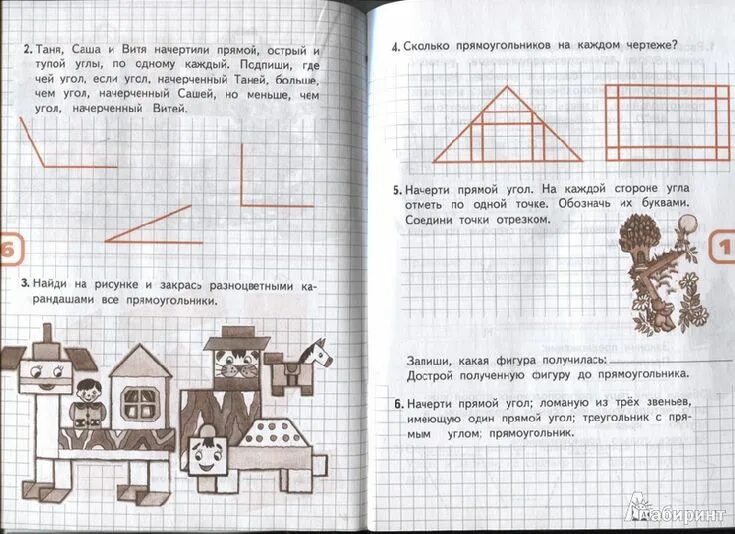 2. Таня, Саша и Витя начертили прямой, острый и
тупой углы, по одному каждый. Подпиши, где
чей угол, если угол, начерченный Таней, больше,
чем угол, начерченный Сашей, но меньше, чем
угол, начерченный Витей.
6
3. Найди на рисунке и закрась разноцветными ка-
рандашами все прямоугольники.
4. Сколько прямоугольников на каждом чертеже?
5. Начерти прямой угол. На каждой стороне угла
отметь по одной точке. Обозначь их буквами.
Соедини точки отрезком.
1
Запиши, какая фигура получилась:
Дострой полученную фигуру до прямоугольника.
6. Начерти прямой угол; ломаную из трёх звеньев,
имеющую один прямой угол; треугольник с пря-
мым углом; прямоугольник.
Лабиринт